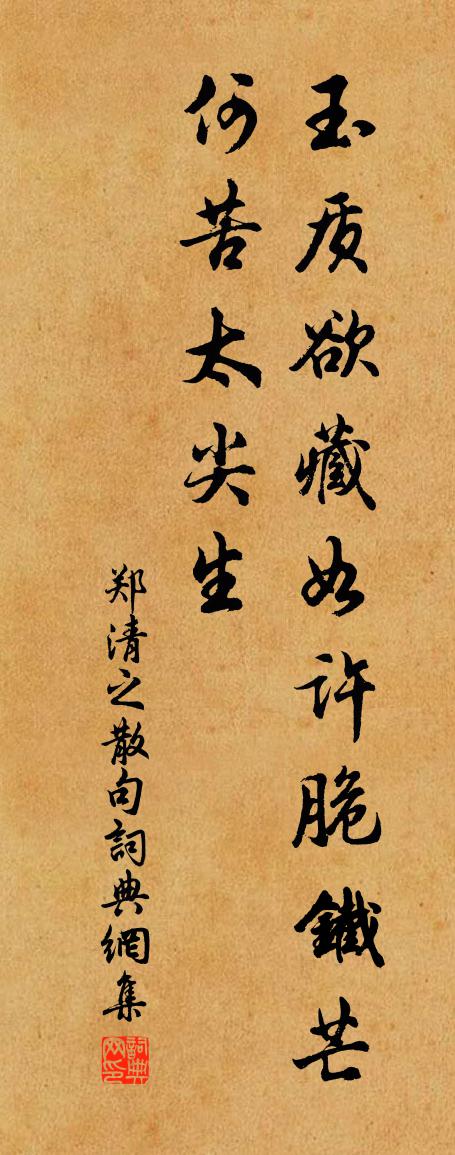 玉质欲藏如许脆鑯芒
何苦太尖生
郑清之散句詞典網集
詞典网印